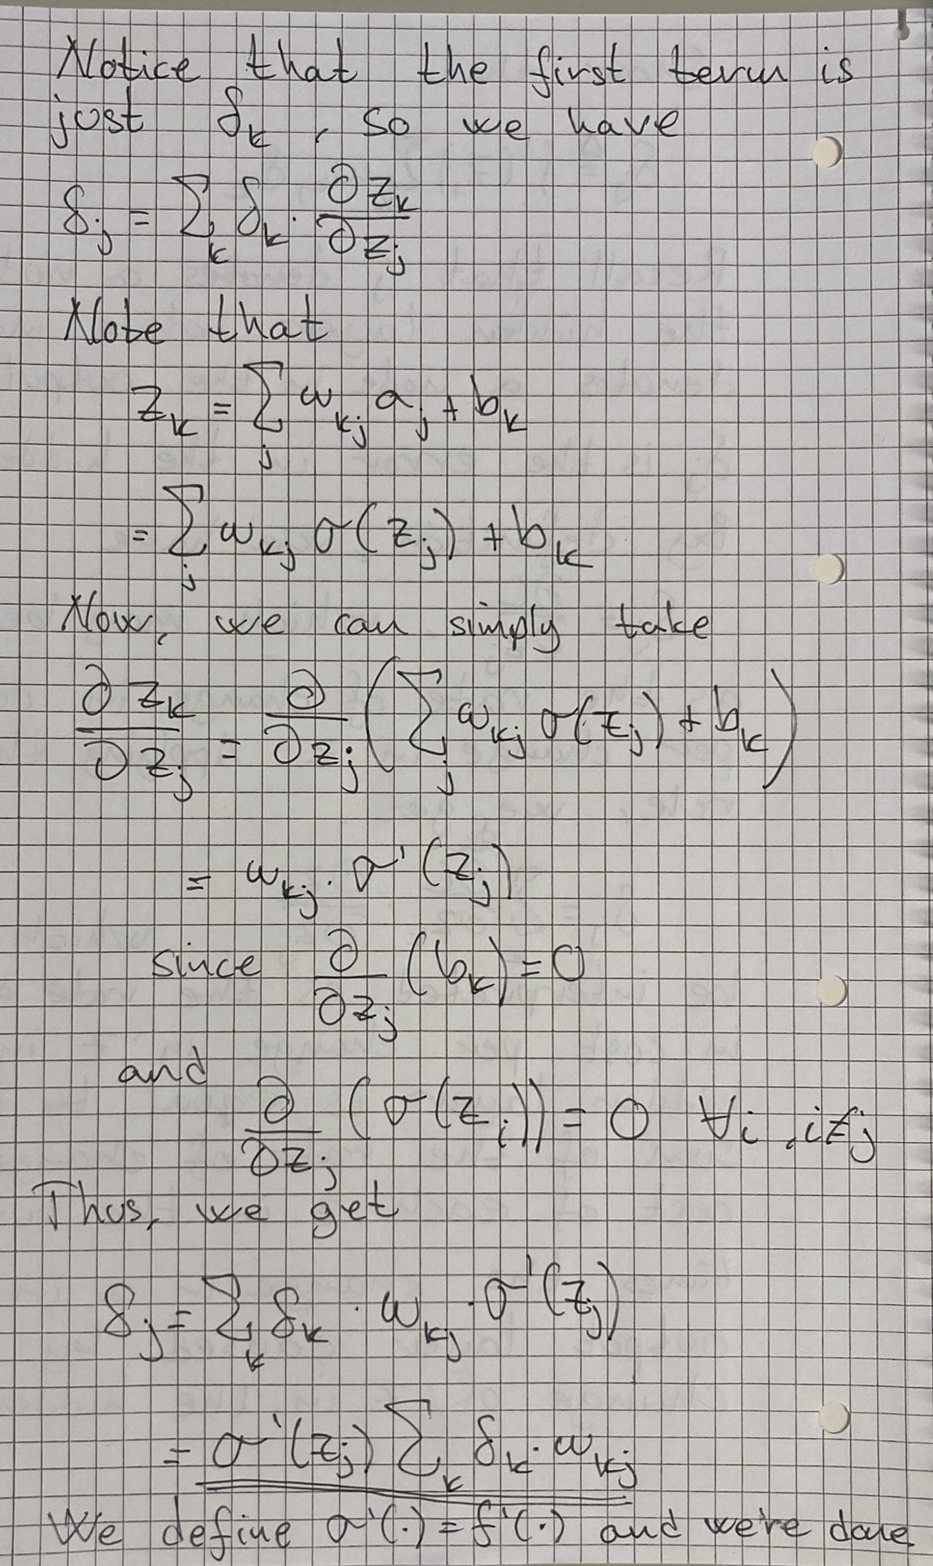 Notice that the first term is
just δ_k, so we have
δ_j = ∑_k δ_k · ∂z_k/∂z_j
Note that
z_k = ∑_j w_kj a_j + b_k
= ∑_j w_kj σ(z_j) + b_k
Now, we can simply take
∂z_k/∂z_j = ∂/∂z_j (∑_j w_kj σ(z_j) + b_k)
= w_kj · σ'(z_j)
since ∂/∂z_j (b_k) = 0
and
∂/∂z_j (σ(z_i)) = 0 ∀i, i≠j
Thus, we get
δ_j = ∑_k δ_k · w_kj · σ'(z_j)
= σ'(z_j) ∑_k δ_k · w_kj
We define σ'(·) = f'(·) and we're done